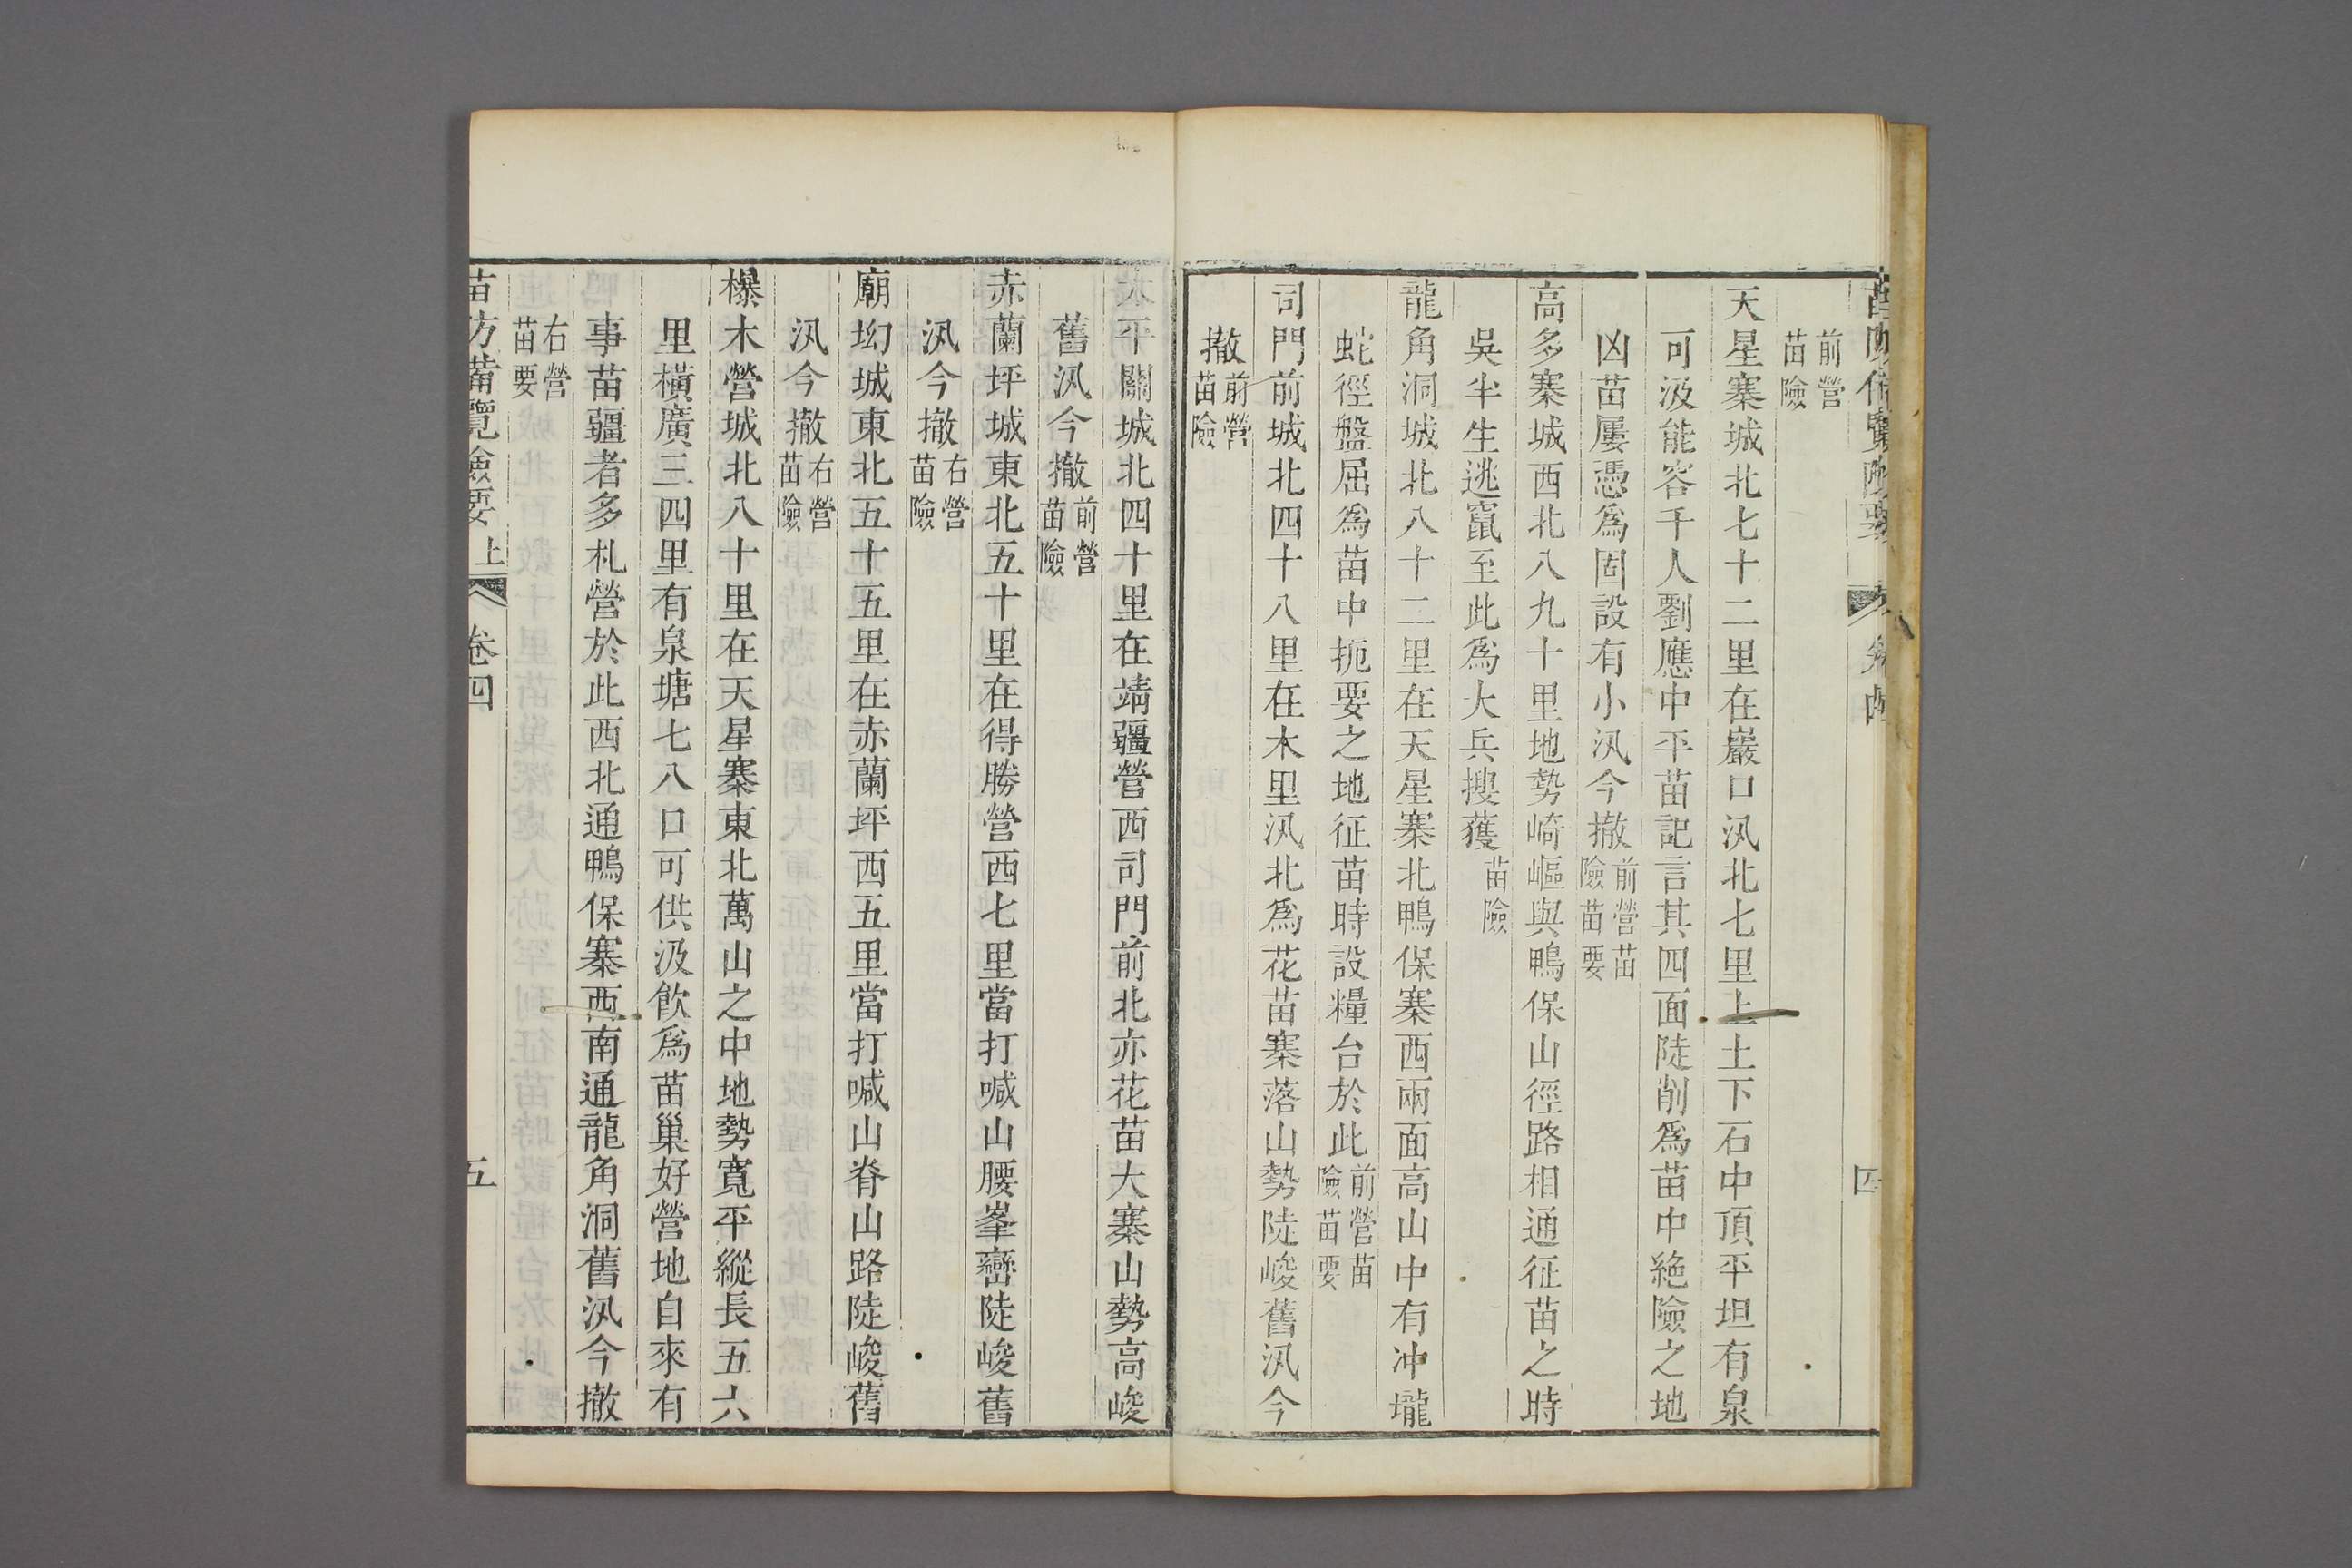 前營
苗險
天星寨城北七十二里在巖口汛北七里上土下石中頂平坦有泉
可汲能容千人劉應中平苗記言其四面陡削爲苗中絶險之地
凶苗屢憑爲固設有小汛今撤前營苗險苗要
高多寨城西北八九十里地勢崎嶇與鴨保山徑路相通征苗之時
吳半生逃竄至此爲大兵搜獲苗險
龍角洞城北八十二里在天星寨北鴨保寨西兩面高山中有冲壠
蛇徑盤屈爲苗中扼要之地征苗時設糧台於此前營苗險苗要
司門前城北四十八里在木里汛北爲花苗寨落山勢陡峻舊汛今
撤前營苗險
太平關城北四十里在靖疆營西司門前北亦花苗大寨山勢高峻
舊汛今撤前營苗險
赤蘭坪城東北五十里在得勝營西七里當打喊山腰峯巒陡峻舊
汛今撤右營苗險
廟㘭城東北五十五里在赤蘭坪西五里當打喊山脊山路陡峻舊
汛今撤右營苗險
欅木營城北八十里在天星寨東北萬山之中地勢寬平縱長五六
里橫廣三四里有泉塘七八口可供汲飲爲苗巢好營地自來有
事苗疆者多札營於此西北通鴨保寨西南通龍角洞舊汛今撤
右營
苗要
苗防備覽險要上 卷四 五